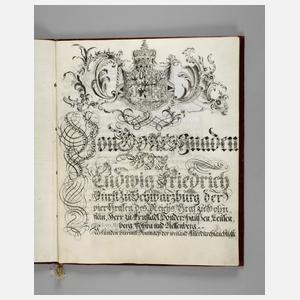 Von Gottes Gnaden
Wir
Ludwig Friedrich
Fürst zu Schwarzburg der
vier Grafen des Reichs Graf zu Hohn
stein, Herr zu Arnstadt Sondershausen Leuten
berg, Lohra und Klettenberg